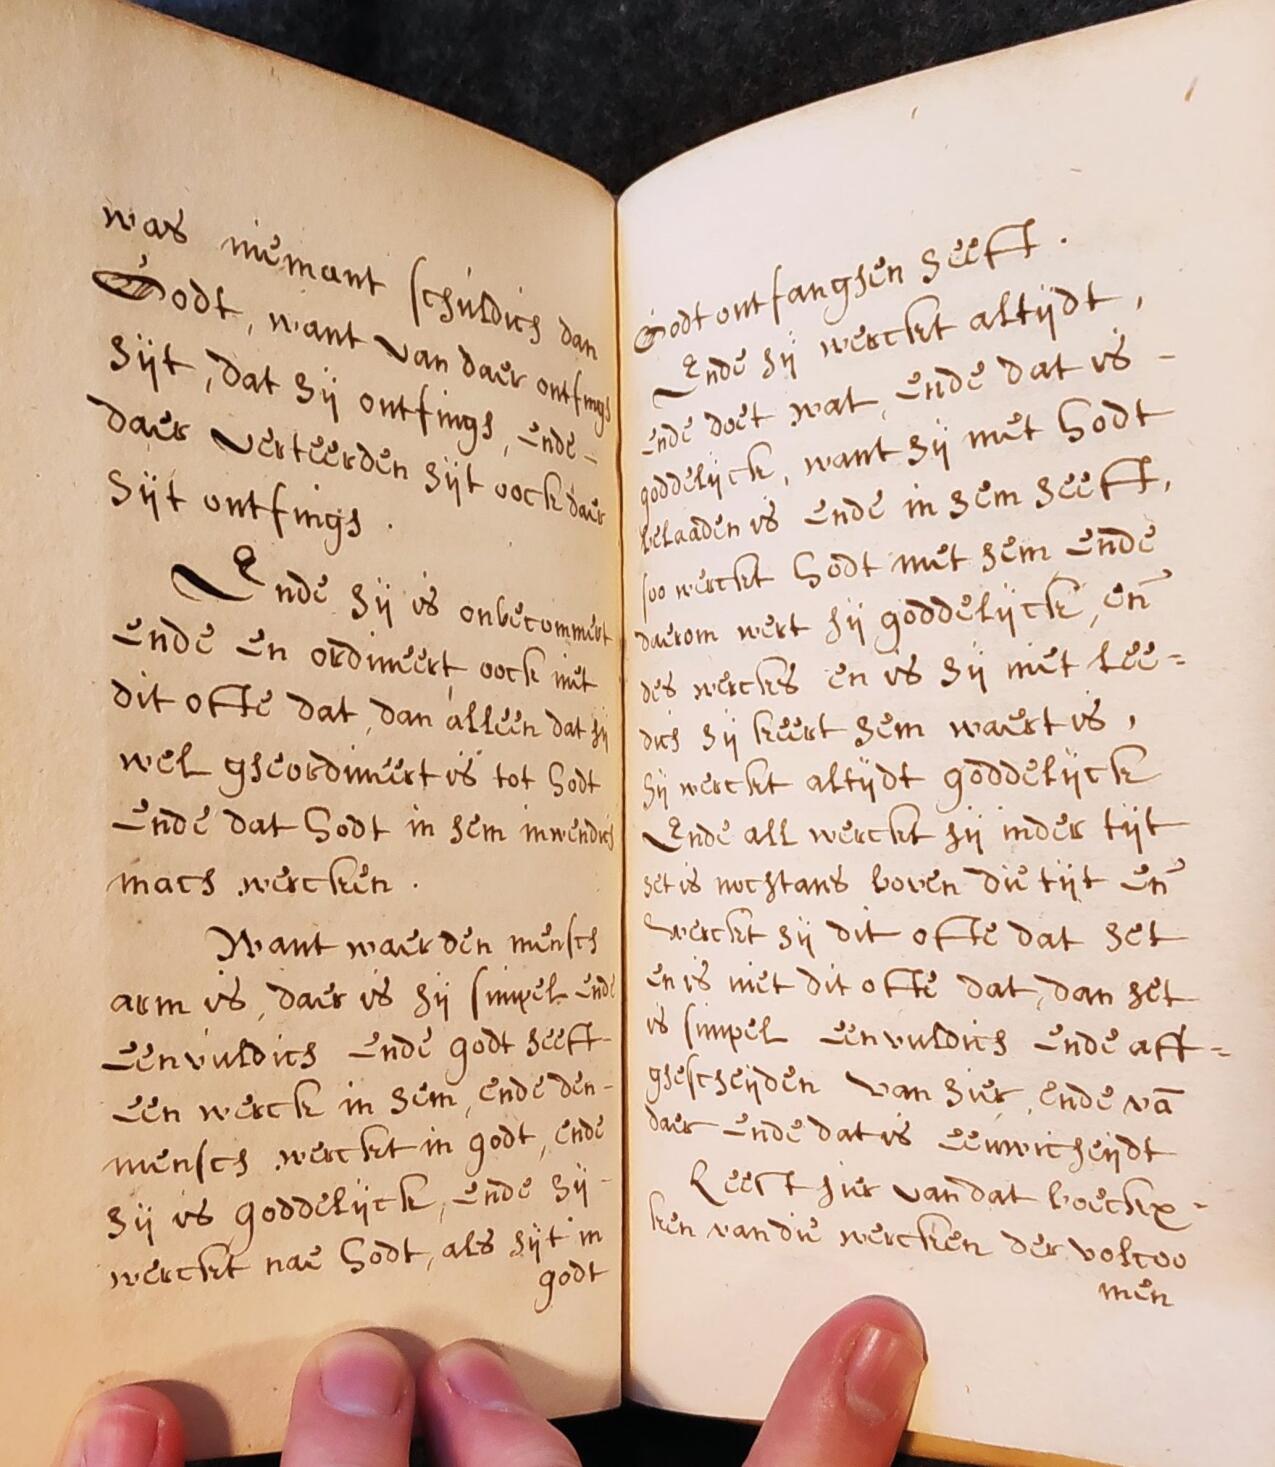 was niemant schuldich dan
Godt, want van daer ontfingh
hijt, dat hij ontfingh, ende -
daer verteerden hijt oock daer
hijt ontfingh.
Ende hij is onbecommert
ende en ordineert oock niet
dit ofte dat, dan alleen dat hij
wel gheordineert is tot Godt
ende dat Godt in hem inwendich
mach wercken.
Want waer den mensch
arm is, daer is hij simpel ende
eenvuldich ende godt heeft
een werck in hem, ende den -
mensch werckt in godt, ende
hij is goddelijck, ende hij -
werckt nae Godt, als hijt in
godt
Godt ontfanghen heeft.
Ende hij werckt altijdt,
ende doet wat, ende dat is -
goddelijck, want hij met Godt
belaaden is ende in hem heeft,
soo werckt Godt met hem ende
daerom wert hij goddelijck, en̄
des wercks en is hij niet lee=
dich hij keert hem waert is,
hij werckt altijdt goddelijck
Ende all werckt hij inder tijt
het is nochtans boven die tijt en̄
werckt hij dit ofte dat het
en is niet dit ofte dat, dan het
is simpel eenvuldich ende aff=
ghescheijden van hier, ende vā
daer ende dat is eeuwicheijdt
Leert hier van dat boeckx=
ken van die wercken der volcoo
men